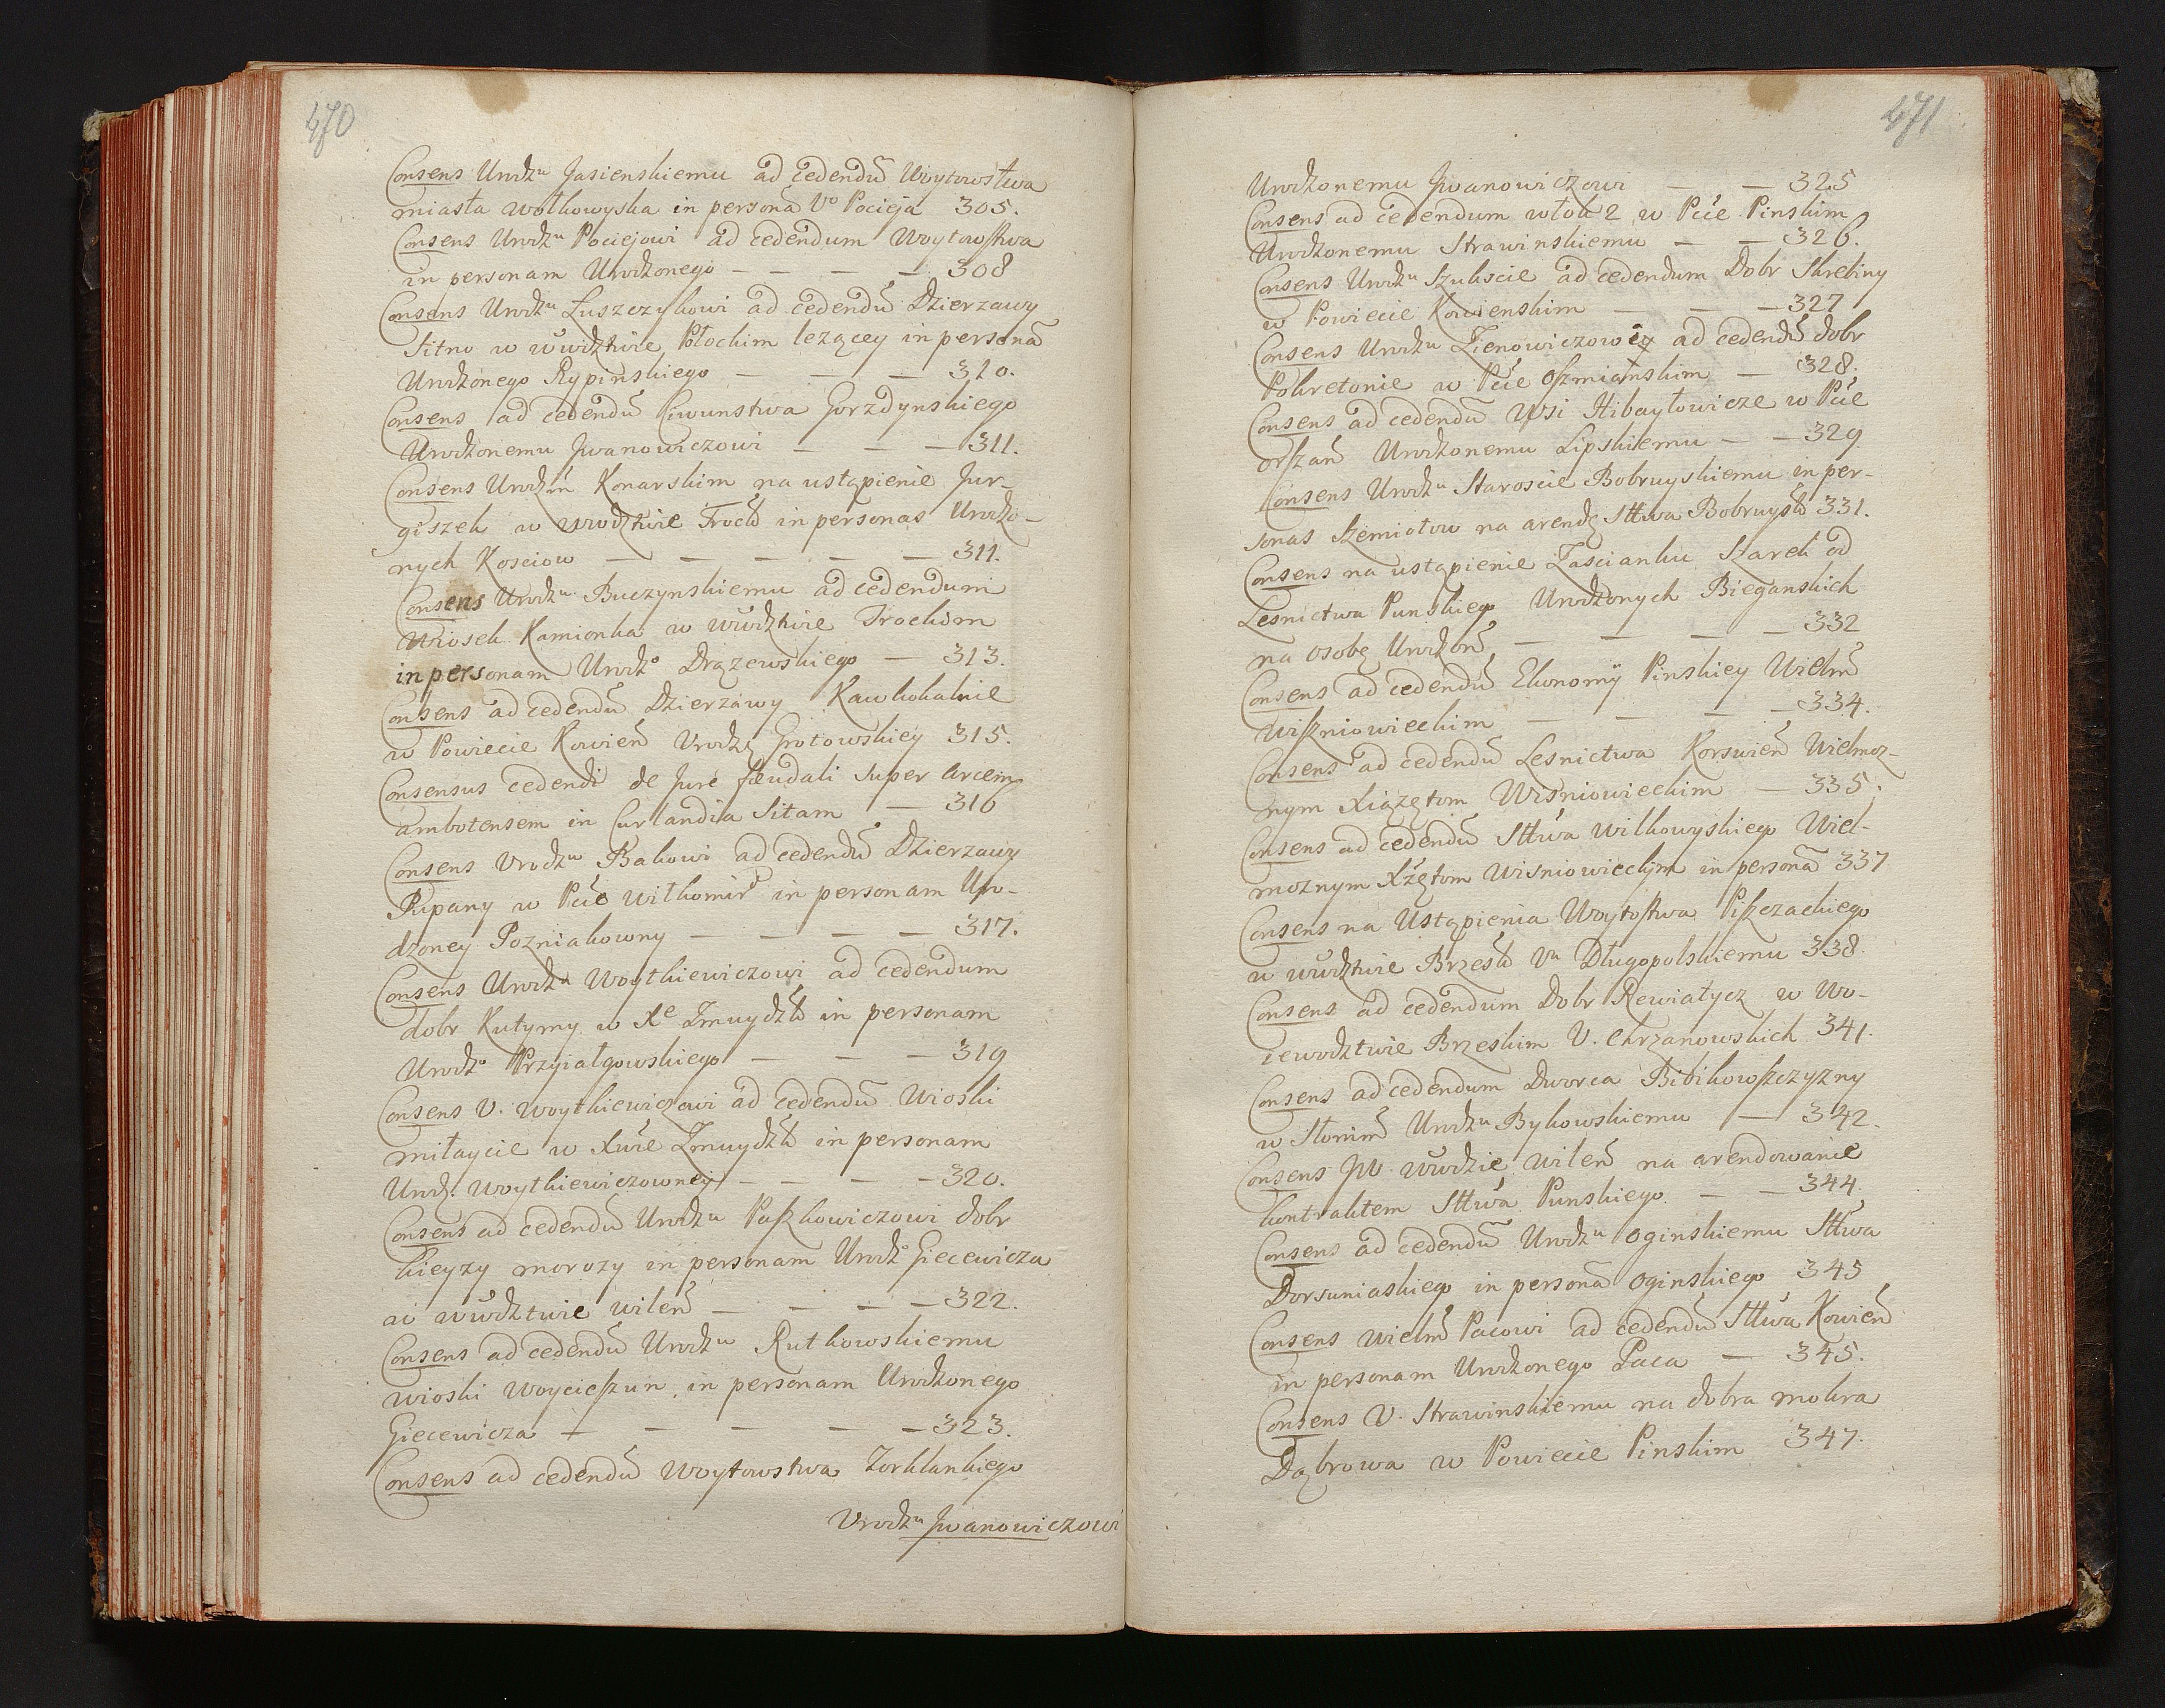 470
Consens Urodzu Jasienskiemu ad cedendū Woytowstwa
miasta wołkowyska in personā Vo Pocieja 305.
Consens Urodzu Pociejowi ad cedendum Woytowstwa
in personam Urodzonego — — — — 308
Consens Urodzu Łuszczykowi ad cedendū Dzierzawy
Sitno w wwdztwie Płockim lezącey in personā
Urodzonego Rypinskiego — — — 310.
Consens ad cedendū Ciwunstwa Gorzdynskiego
Urodzonemu Jwanowiczowi — — — 311.
Consens Urodzm Konarskim na ustąpienie Jur-
giszek w wwodztwie Trock in personas Urodzo-
nych Kosciow — — — — — 311.
Consens Urodzu Buczynskiemu ad cedendum
Wiosek Kamionka w wwdztwie Trockim
in personam Urodzo Drązewskiego — 313.
Consens ad cedendū Dzierzawy Kawkokalnie
w Powiecie Kowień Vrodzę Grotowskiey 315.
Consensus cedendi de Jure feudali super Arcem
ambotensem in Curlandia Sitam — 316
Consens Vrodzu Bakowi ad cedendū Dzierzawy
Pupany w Pcie wiłkomir in personam Uro-
dzoney Pozniakowny — — — — 317.
Consens Urodzu Woytkiewiczowi ad cedendum
dobr Kutymy w Xe Zmuydzk in personam
Urodzo Przyiałgowskiego — — — 319
Consens V. Woytkiewiczowi ad cedendū Wioski
miłaycie w Xwie Zmuydzk in personam
Urodz. Woytkiewiczowney — — — 320.
Consens ad cedendū Urodzu Paszkowiczowi dobr
kieyzy morozy in personam Urodzo Giecewicza
w wwdztwie wileń — — — — 322.
Consens ad cedendū Urodzu Rutkowskiemu
wioski Woycieszun in personam Urodzonego
Giecewicza — — — — — 323.
Consens ad cedendū Woytowstwa Zorklankiego
Vrodzu Jwanowiczowi
471
Urodzonemu Jwanowiczowi — — 325
Consens ad cedendum włok 2 w Pcie Pinskim
Urodzonemu Strawinskiemu — — 326.
Consens Urodzu Szukscie ad cedendum Dobr Skrebiny
w Powiecie Kowienskim — — — 327
Consens Urodzu Zienowiczowey ad cedendū dobr
Pokretonie w Pcie Oszmianskim — 328.
Consens ad cedendū Wsi Hibayłowicze w Pcie
orszań Urodzonemu Lipskiemu — — 329
Consens Urodzu Staroscie Bobruyskiemu in per-
sonas Szemiotow na arendę Sttwa Bobruysk 331.
Consens na ustąpienie Zascianku Szarek od
Lesnictwa Punskiego Urodzonych Bieganskich
na osobę Urodzon — — — — 332
Consens ad cedendū Ekonomÿ Pinskiey Wielm
Wiszniowieckim — — — — 334.
Consens ad cedendū Lesnictwa Korswień Wielmoz-
nym Xiążętom Wisniowieckim — 335.
Consens ad cedendū Sttwa Wilkowyskiego Wiel-
moznym Xżętom Wisniowieckim in personā 337
Consens na Ustąpienia Woytostwa Piszczackiego
w wwdztwie Brzesk Vu Długopolskiemu 338.
Consens ad cedendum Dobr Rewiatycz w Wo-
iewodztwie Brzeskim V. Chrzanowskich 341.
Consens ad cedendum Dworca Bibikowszczyzny
w Słonim Urodzu Bykowskiemu — 342.
Consens JW. wwdzie wileń na arendowanie
kontraktem Sttwa Punskiego — — 344.
Consens ad cedendū Urodzu Oginskiemu Sttwa
Dorsuniaskiego in personā Oginskiego 345
Consens Wielm Pacowi ad cedendū Sttwa Kowień
in personam Urodzonego Paca — 345.
Consens V. Strawinskiemu na dobra mokra
Dąbrowa w Powiecie Pinskim 347.